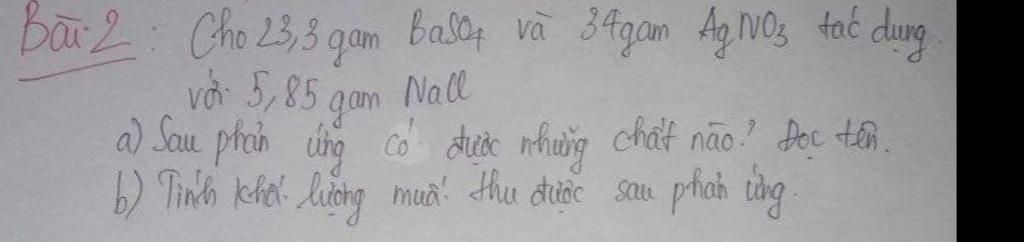 Bài 2: Cho 23,3 gam BaSO4 và 34 gam AgNO3 tác dụng
với 5,85 gam NaCl
a) Sau phản ứng có được những chất nào? Đọc tên.
b) Tính khối lượng muối thu được sau phản ứng.